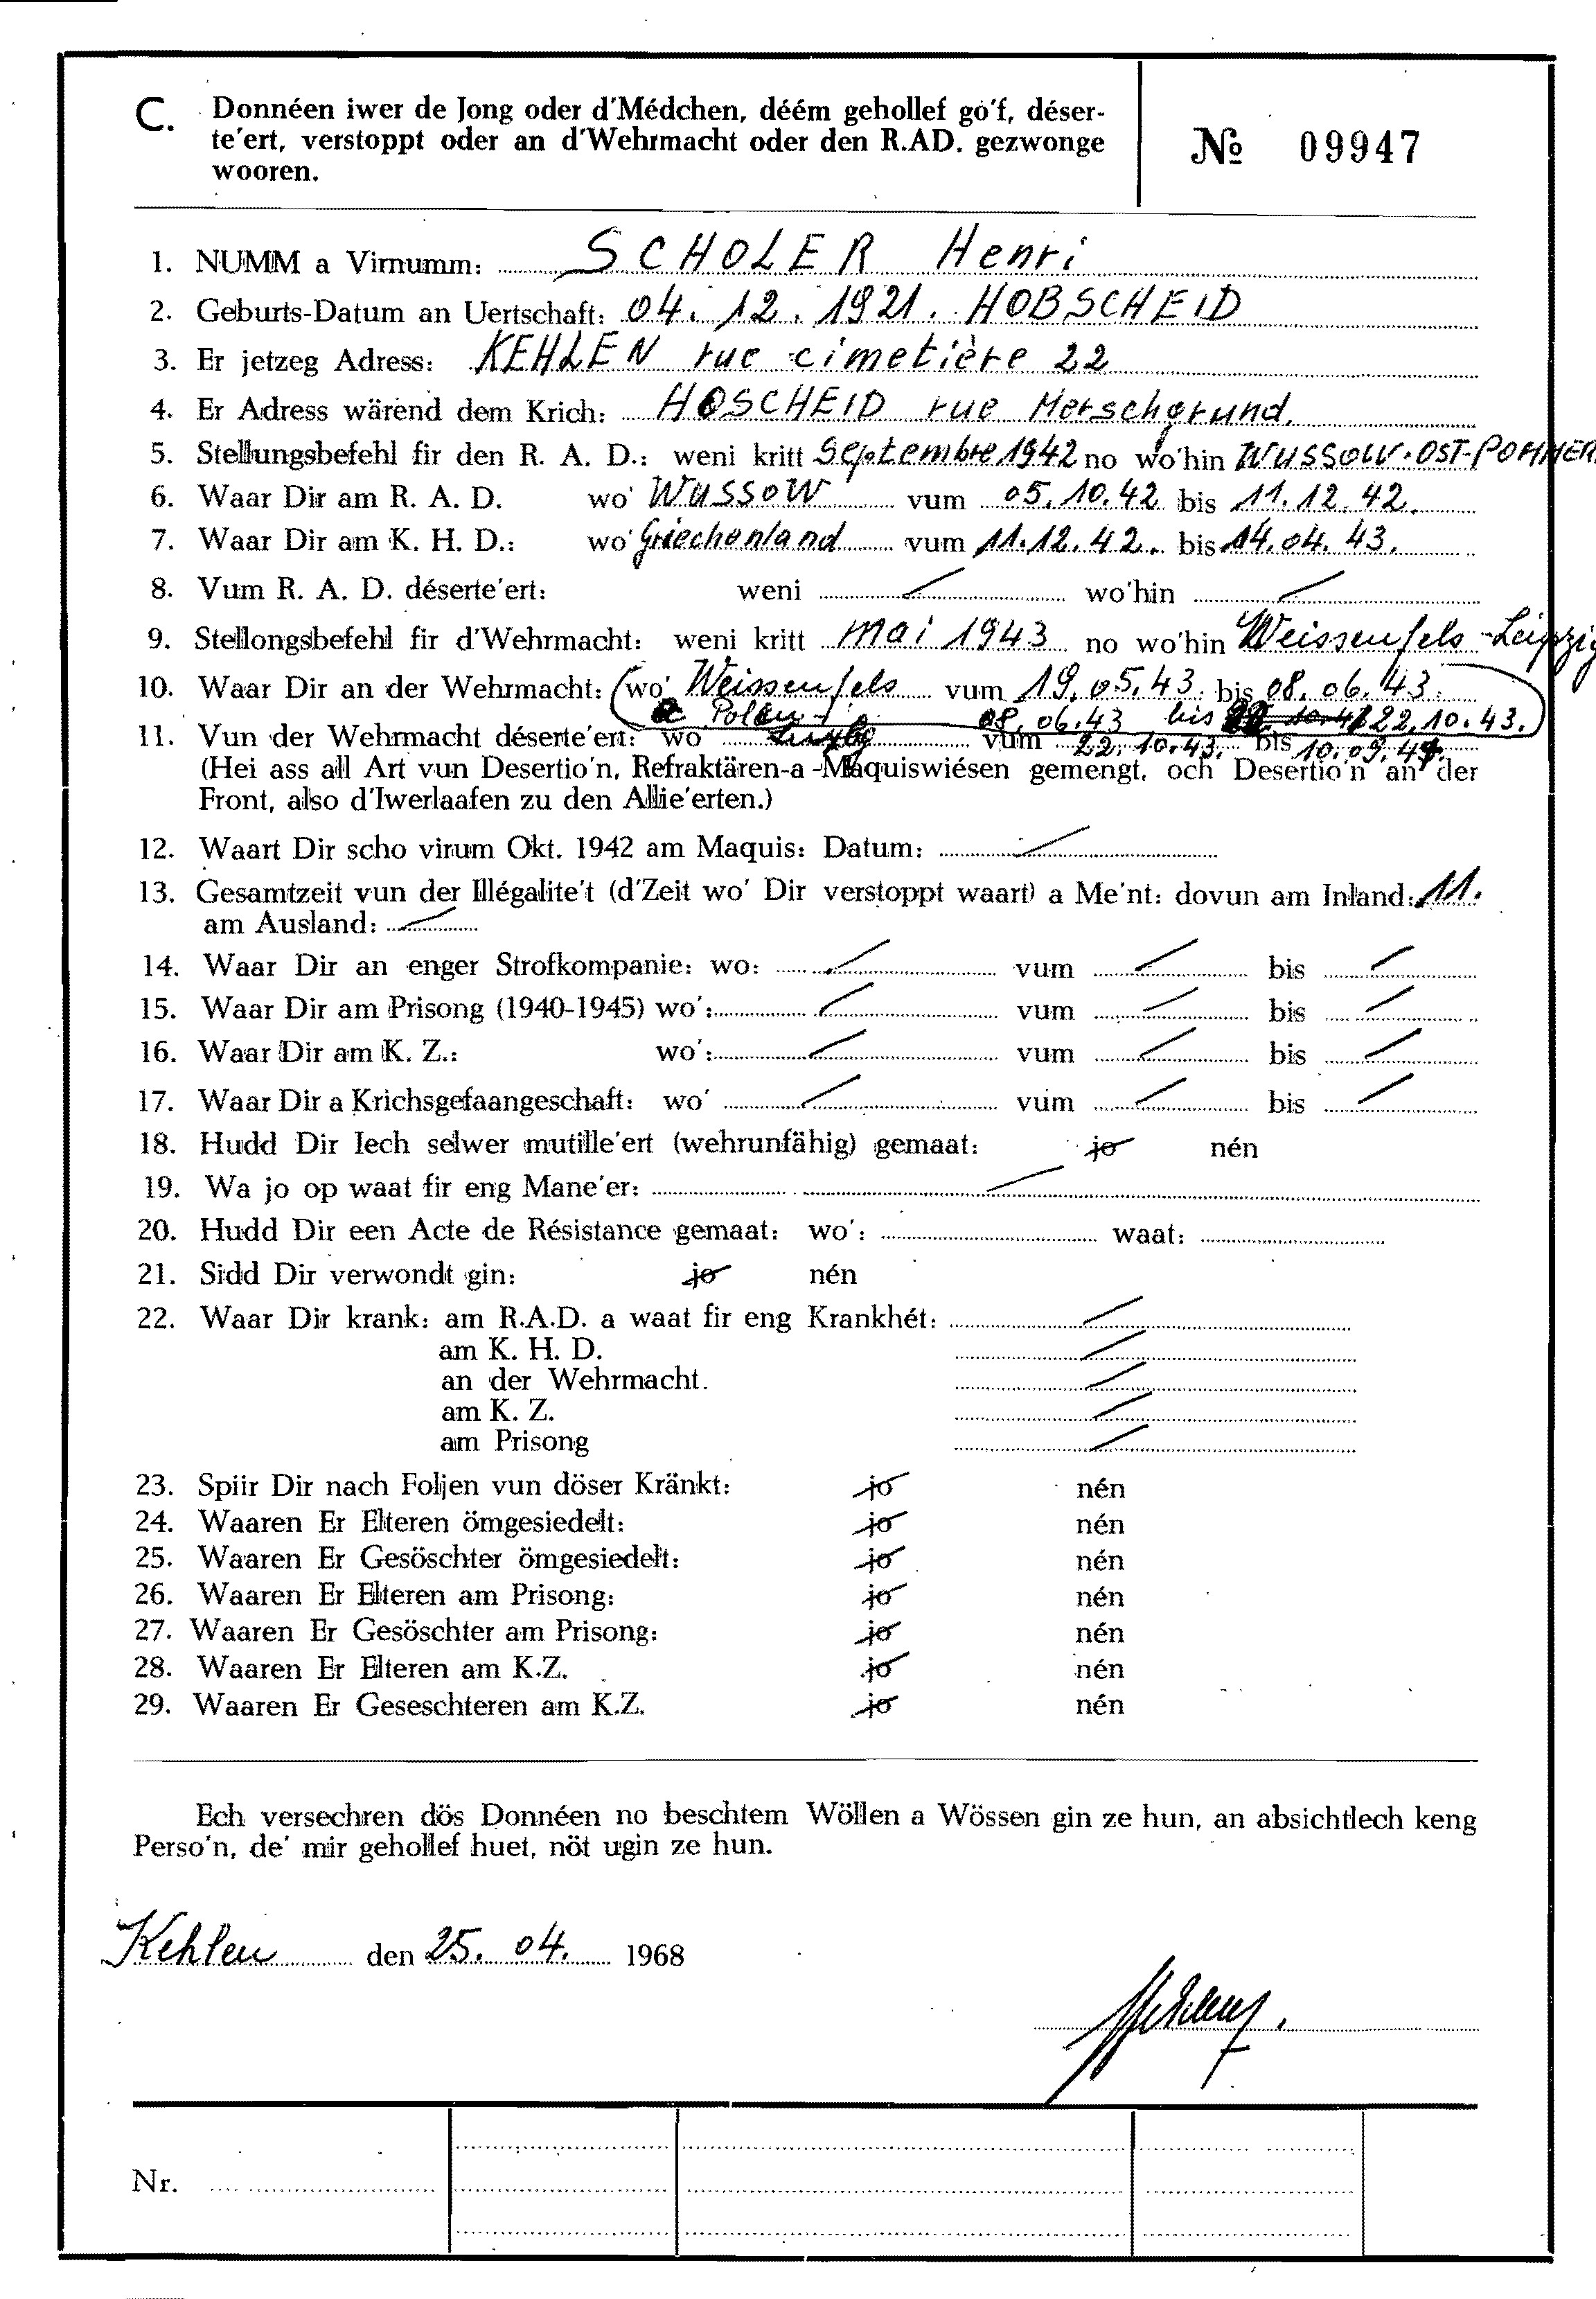 C. Donnéen iwer de Jong oder d'Médchen, déém gehollef go'f, déser-
te'ert, verstoppt oder an d'Wehrmacht oder den R.AD. gezwonge
wooren.
№ 09947
1. NUMM a Virnumm: SCHOLER Henri
2. Geburts-Datum an Uertschaft: 04. 12. 1921. HOBSCHEID
3. Er jetzeg Adress: KEHLEN rue cimetière 22
4. Er Adress wärend dem Krich: HOSCHEID rue Merschgrund.
5. Stellungsbefehl fir den R. A. D.: weni kritt Septembre 1942 no wo'hin WUSSOW. OST-POMMER
6. Waar Dir am R. A. D. wo' WUSSOW vum 05.10.42 bis 11.12.42.
7. Waar Dir am K. H. D.: wo' Griechenland vum 11.12.42. bis 14.04.43.
8. Vum R. A. D. déserte'ert: weni wo'hin
9. Stellongsbefehl fir d'Wehrmacht: weni kritt mai 1943 no wo'hin Weissenfels-Leipzig
10. Waar Dir an der Wehrmacht: wo' Weissenfels vum 19.05.43. bis 08.06.43.
Polen 08.06.43 bis 22.10.43.
11. Vun der Wehrmacht déserte'ert: wo vum 22.10.43. bis 10.09.44.
(Hei ass all Art vun Desertio'n, Refraktären-a -Maquiswiésen gemengt, och Desertio'n an der
Front, also d'Iwerlaafen zu den Allie'erten.)
12. Waart Dir scho virum Okt. 1942 am Maquis: Datum:
13. Gesamtzeit vun der Illégalite't (d'Zeit wo' Dir verstoppt waart) a Me'nt: dovun am Inland: 11.
am Ausland:
14. Waar Dir an enger Strofkompanie: wo: vum bis
15. Waar Dir am Prisong (1940-1945) wo': vum bis
16. Waar Dir am K. Z.: wo': vum bis
17. Waar Dir a Krichsgefaangeschaft: wo' vum bis
18. Hudd Dir Iech selwer mutille'ert (wehrunfähig) gemaat: jo nén
19. Wa jo op waat fir eng Mane'er:
20. Hudd Dir een Acte de Résistance gemaat: wo': waat:
21. Sidd Dir verwondt gin: jo nén
22. Waar Dir krank: am R.A.D. a waat fir eng Krankhét:
am K. H. D.
an der Wehrmacht.
am K. Z.
am Prisong
23. Spiir Dir nach Foljen vun döser Kränkt: jo nén
24. Waaren Er Elteren ömgesiedelt: jo nén
25. Waaren Er Gesöschter ömgesiedelt: jo nén
26. Waaren Er Elteren am Prisong: jo nén
27. Waaren Er Gesöschter am Prisong: jo nén
28. Waaren Er Elteren am K.Z. jo nén
29. Waaren Er Geseschteren am K.Z. jo nén
Ech versechren dös Donnéen no beschtem Wöllen a Wössen gin ze hun, an absichtlech keng
Perso'n, de' mir gehollef huet, nöt ugin ze hun.
Kehlen den 25. 04. 1968
Nr.